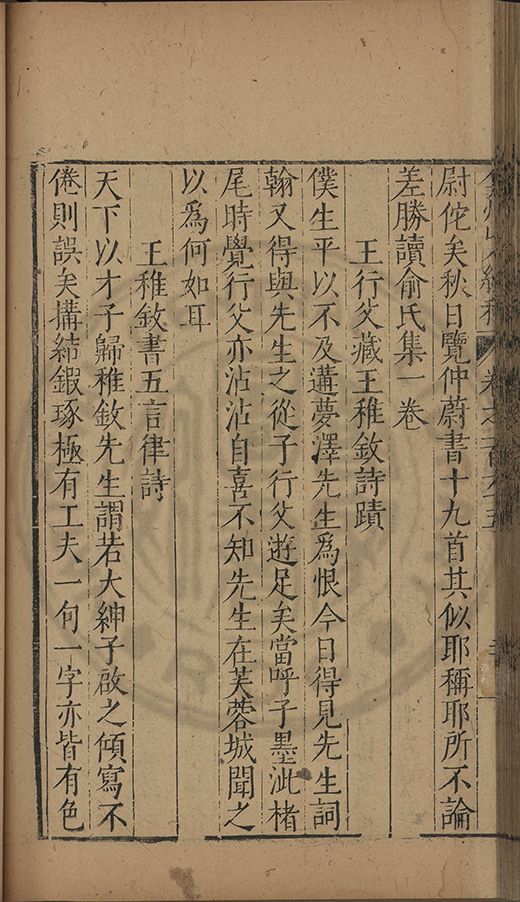 尉佗矣秋日覽仲蔚書十九首其似耶稱耶所不論
差勝讀俞氏集一卷
王行父藏王稚欽詩蹟
僕生平以不及遘夢澤先生爲恨今日得見先生詞
翰又得與先生之從子行父遊足矣當呼子墨泚楮
尾時覺行父亦沾沾自喜不知先生在芙蓉城聞之
以爲何如耳
王稚欽書五言律詩
天下以才子歸稚欽先生謂若大紳子啟之傾寫不
倦則誤矣搆結鍜琢極有工夫一句一字亦皆有色